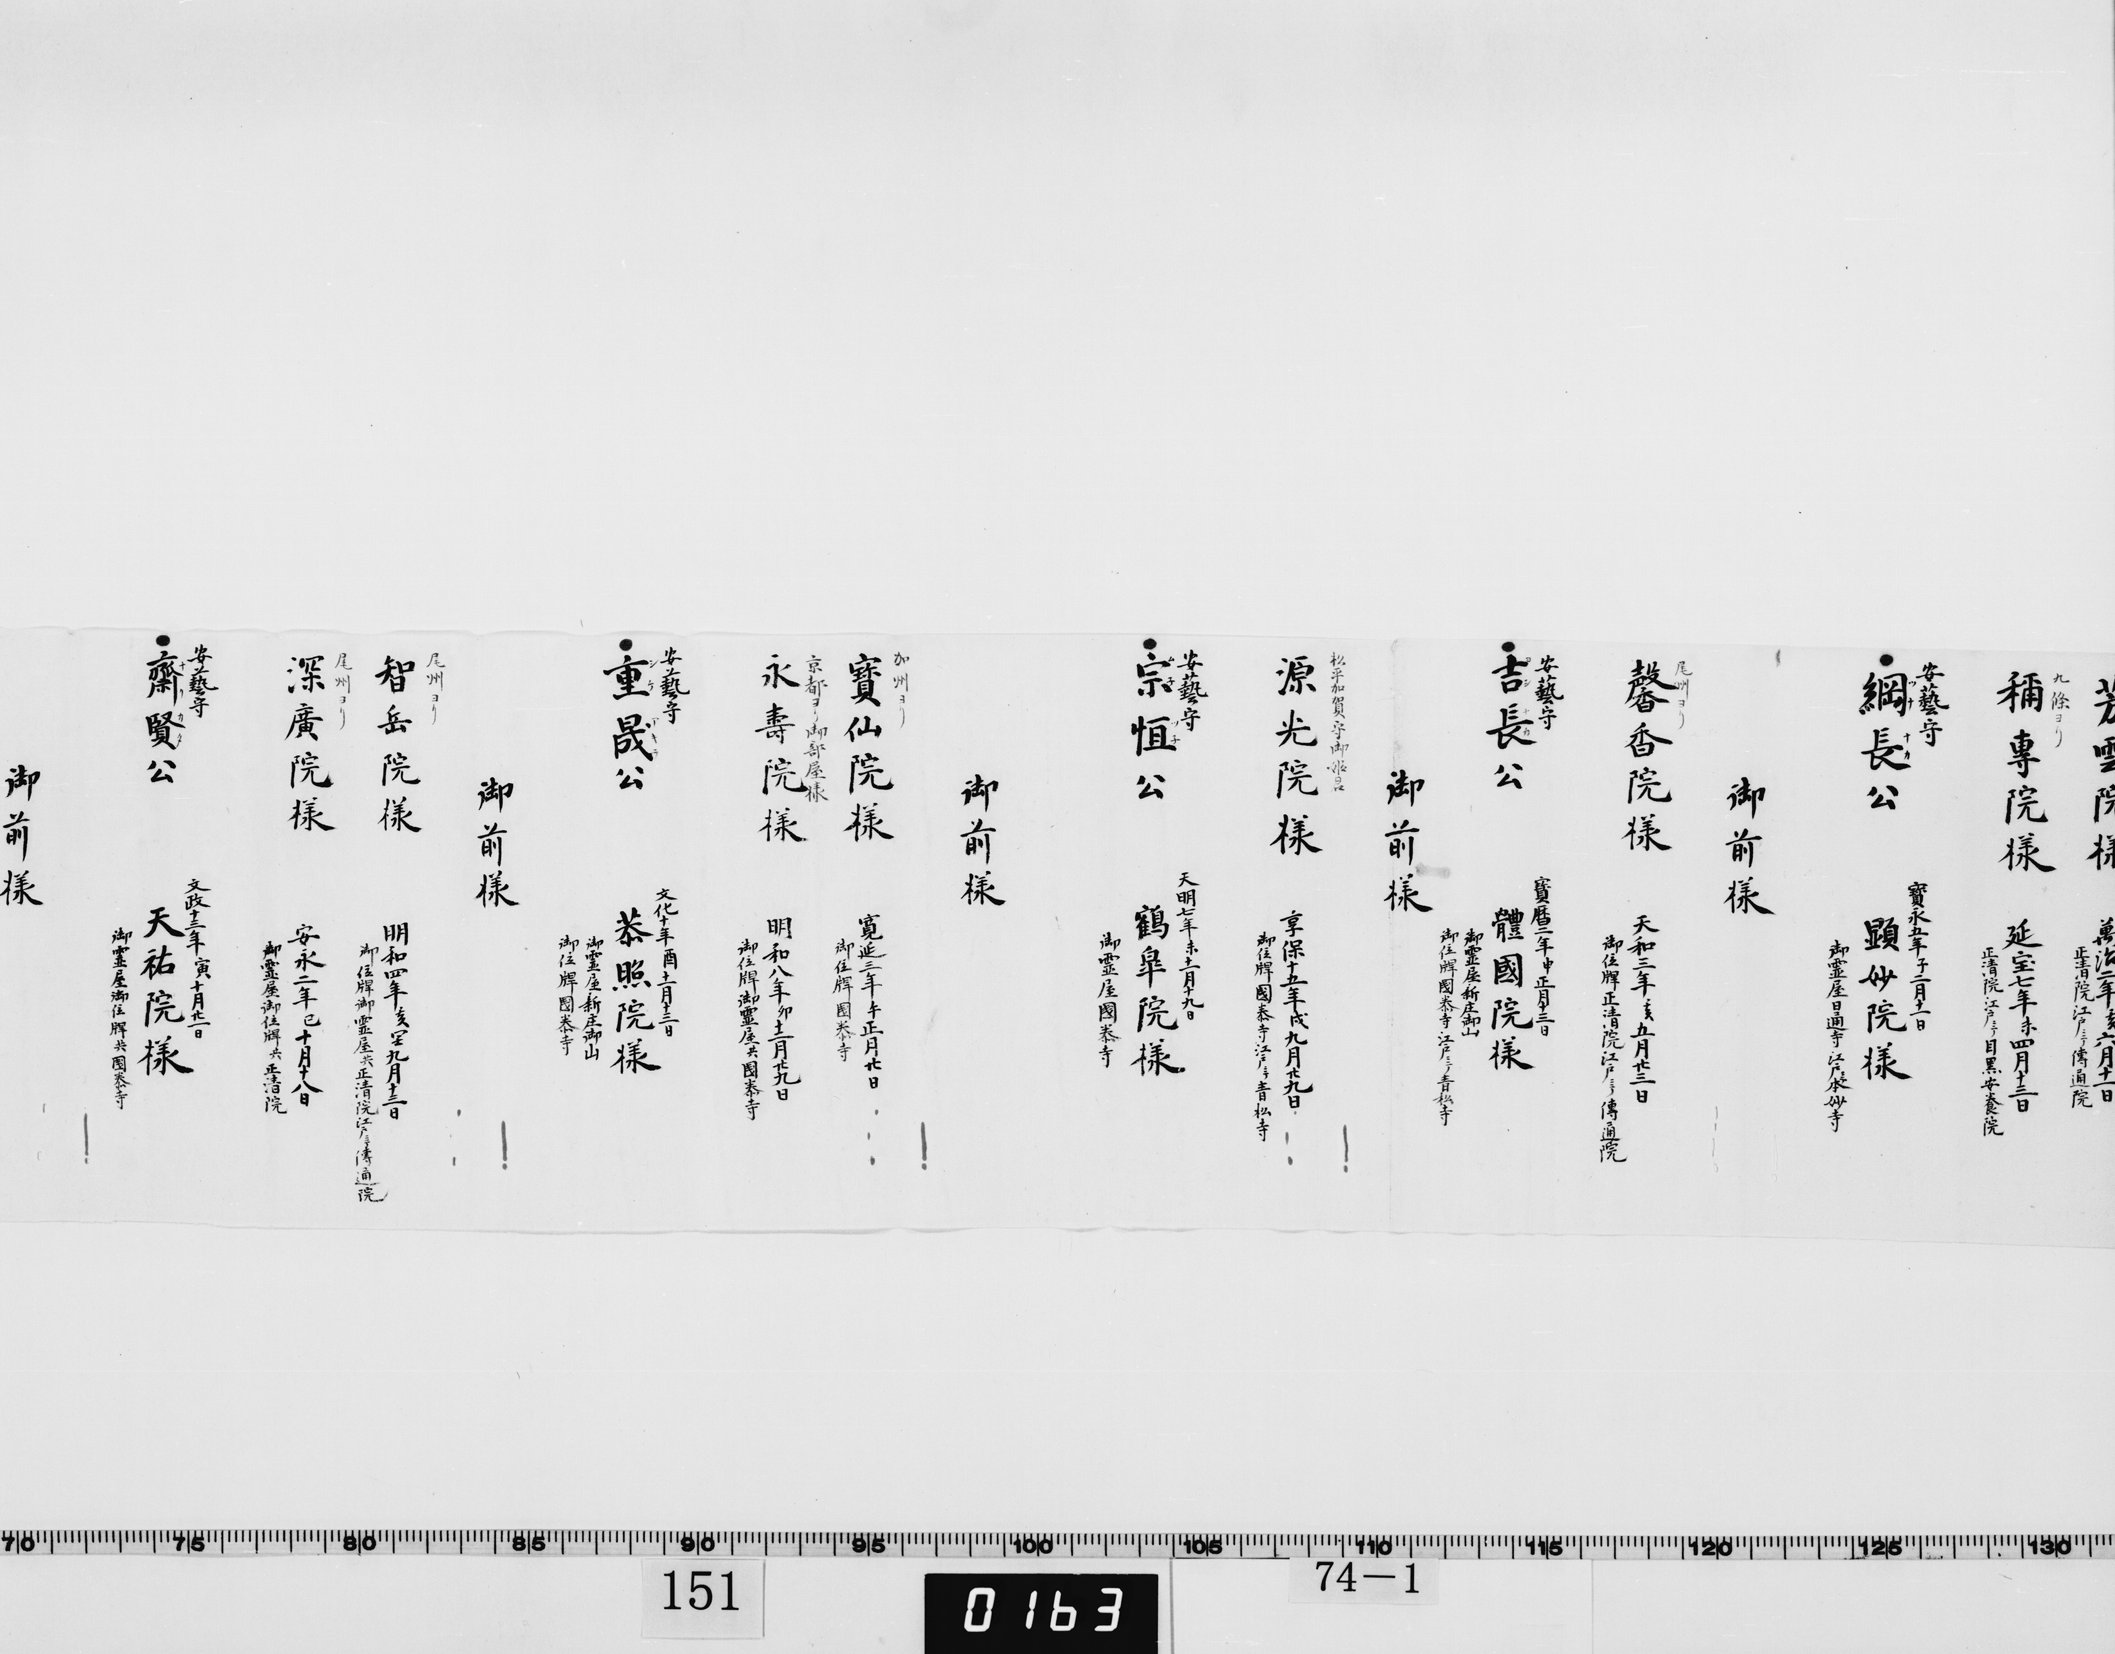 芳雲院様
萬治二年亥六月十一日
正清院江戸ニ而傳通院
九條ヨリ
稱專院様
延宝七年未四月十三日
正清院江戸ニ而目黒安養院
安藝守
綱長公
ツナナカ
寶永五年子二月十一日
顕妙院様
御霊屋日通寺江戸ニ而本妙寺
御前様
尾州ヨリ
馨香院様
天和三年亥五月廿三日
御位牌正清院江戸ニ而傳通院
安藝守
吉長公
ヨシナカ
寶暦二年申正月十三日
體國院様
御霊屋新庄御山
御位牌國泰寺江戸ニ而青松寺
御前様
松平加賀守御姫君
源光院様
享保十五年戌九月廿九日
御位牌國泰寺江戸ニ而青松寺
安藝守
宗恒公
ムネツネ
天明七年未十一月十九日
鶴皐院様
御霊屋國泰寺
御前様
加州ヨリ
寶仙院様
寛延三年午正月廿日
御位牌國泰寺
京都ヨリ御部屋様
永壽院様
明和八年卯十一月廿九日
御位牌御霊屋共國泰寺
安藝守
重晟公
シゲアキラ
文化十年酉十一月十三日
恭照院様
御霊屋新庄御山
御位牌國泰寺
御前様
尾州ヨリ
智岳院様
明和四年亥閏九月十三日
御位牌御霊屋共正清院江戸ニ而傳通院
尾州ヨリ
深廣院様
安永二年巳十月十八日
御霊屋御位牌共正清院
安藝守
齋賢公
ナリカタ
文政十三年寅十月廿一日
天祐院様
御霊屋御位牌共國泰寺
御前様
70 75 80 85 90 95 100 105 110 115 120 125 130
151
0163
74-1